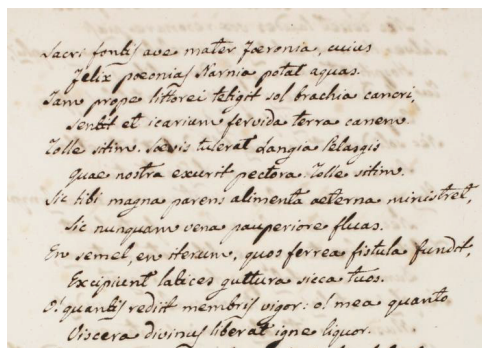 Sacri fontis ave mater Foeronia, cuius
Felix poeonias Narnia potat aquas.
Iam prope littorei tetigit sol brachia cancri,
Sentit et icarium fervida terra canem
Tolle sitim. Saevis tulerat Langia Pelasgis
quae nostra exurit pectora. Tolle sitim.
Sic tibi magna parens alimenta aeterna ministret,
Sic nunquam vena pauperiore fluas.
En semel, en iterum, quos ferrea fistula fundit,
Excipiunt latices guttura sicca tuos.
O! quantis redit membris vigor: o! mea quanto
Viscera divinus liberat igne liquor.